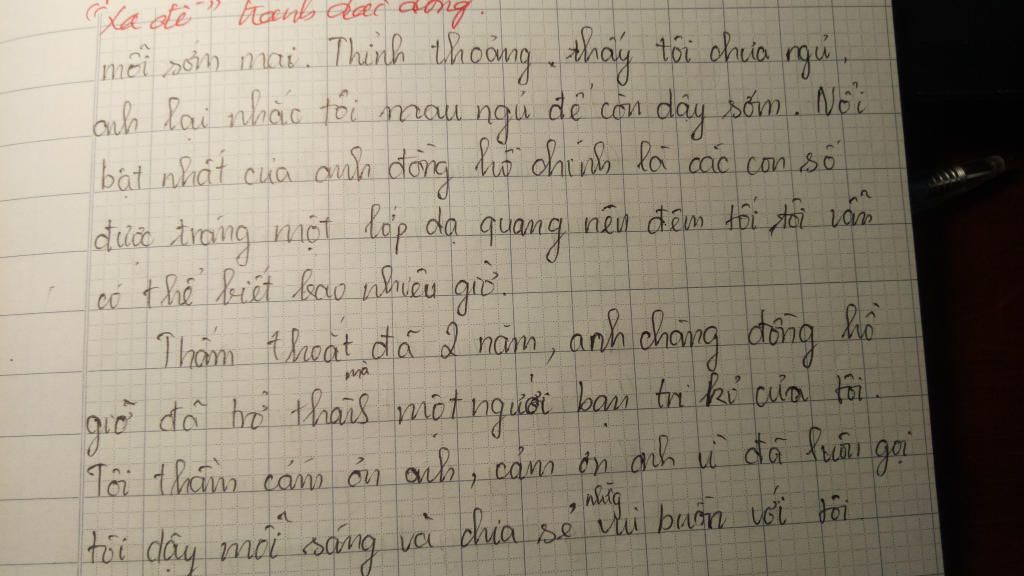 "Xa đề" tranh dài dòng.
mỗi sớm mai. Thỉnh thoảng, thấy tôi chưa ngủ,
anh lại nhắc tôi mau ngủ để còn dậy sớm. Nổi
bật nhất của anh đồng hồ chính là các con số
được tráng một lớp dạ quang nên đêm tối, tôi vẫn
có thể biết bao nhiêu giờ.
Thấm thoát mà đã 2 năm, anh chàng đồng hồ
giờ đã trở thành một người bạn tri kỉ của tôi.
Tôi thầm cảm ơn anh, cảm ơn anh vì đã luôn gọi
tôi dậy mỗi sáng và chia sẻ những vui buồn với tôi